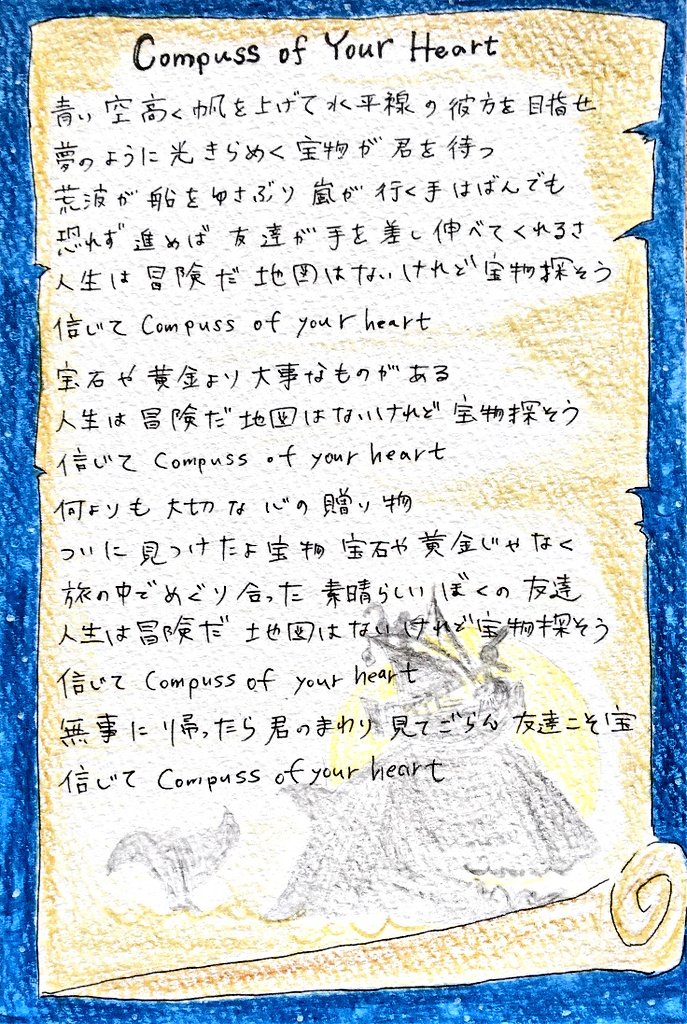 Compuss of Your Heart
青い空高く帆を上げて水平線の彼方を目指せ
夢のように光きらめく宝物が君を待つ
荒波が船をゆさぶり嵐が行く手はばんでも
恐れず進めば友達が手を差し伸べてくれるさ
人生は冒険だ地図はないけれど宝物探そう
信じて Compuss of your heart
宝石や黄金より大事なものがある
人生は冒険だ地図はないけれど宝物探そう
信じて Compuss of your heart
何よりも大切な心の贈り物
ついに見つけたよ宝物宝石や黄金じゃなく
旅の中でめぐり合った素晴らしいぼくの友達
人生は冒険だ地図はないけれど宝物探そう
信じて Compuss of your heart
無事に帰ったら君のまわり見てごらん友達こそ宝
信じて Compuss of your heart